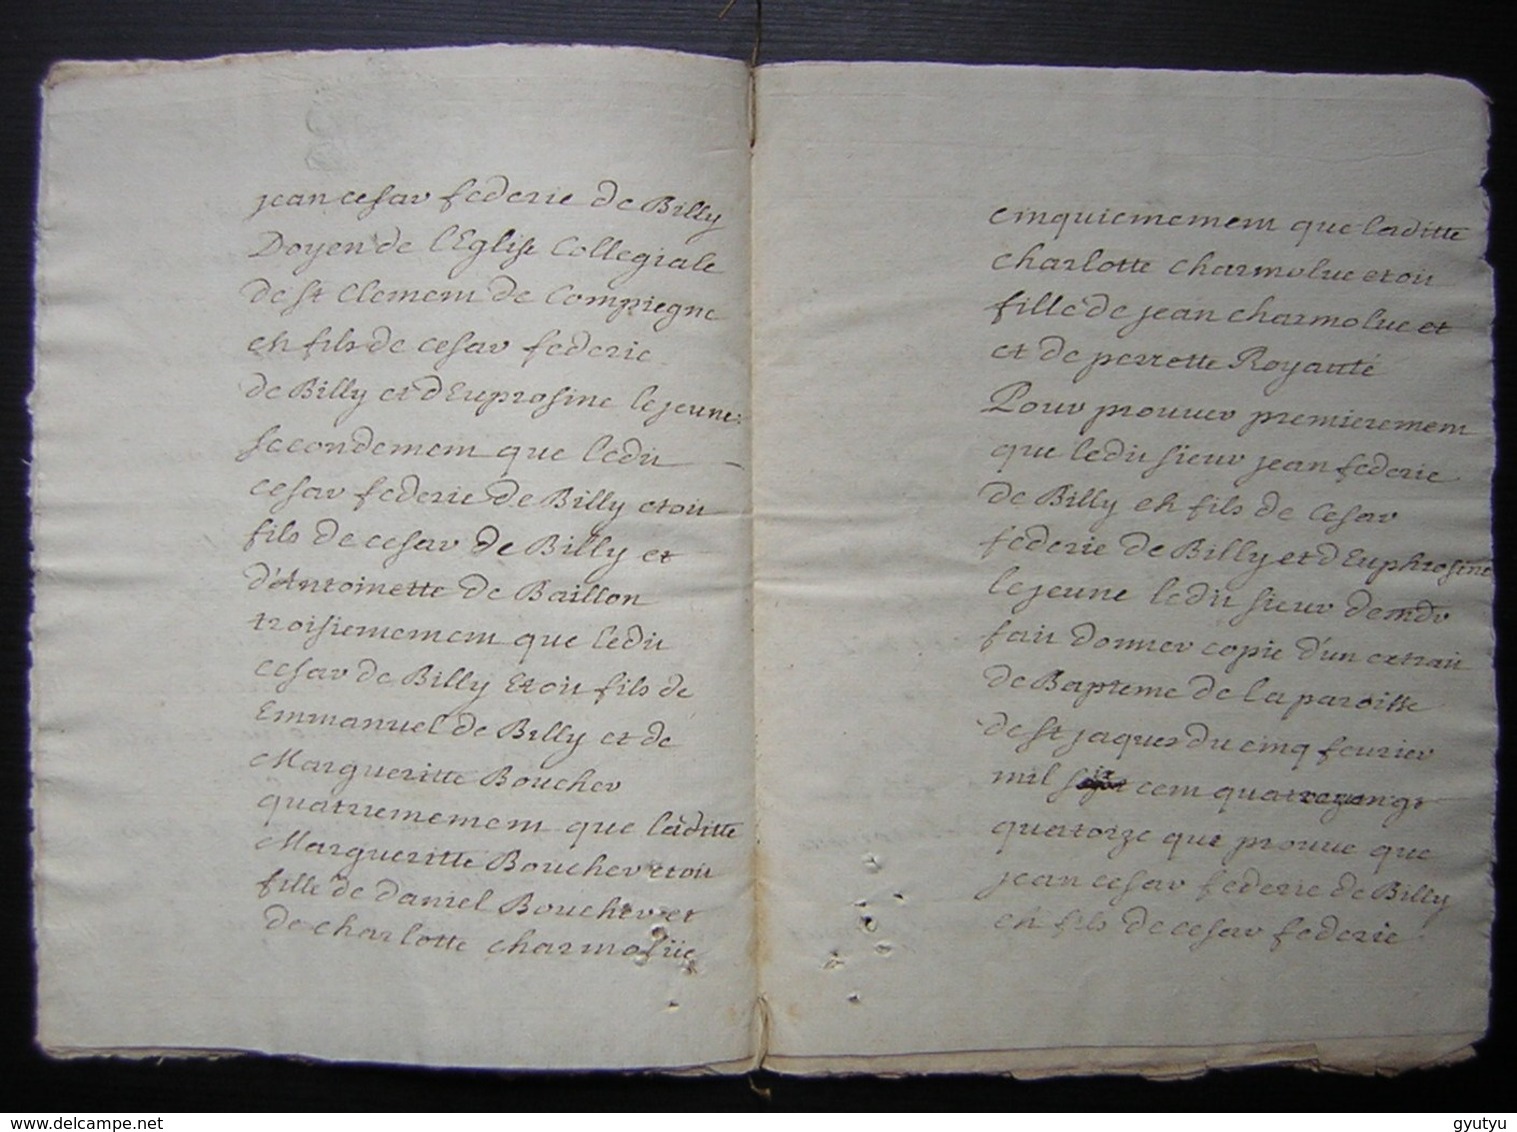 jean cesar federic de Billy
Doyen de l'Eglise Collegiale
de st Clement de Compiegne
est fils de cesar federic
de Billy et d'Euprosine lejeune:
secondement que ledit
cesar federic de Billy etoit
fils de cesar de Billy et
d'Antoinette de Baillon
troisiemement que ledit
cesar de Billy Etoit fils de
Emmanuel de Billy et de
Margueritte Boucher
quatriemement que laditte
Margueritte Boucher etoit
fille de daniel Boucher et
de charlotte charmolüe
cinquiemement que laditte
charlotte charmolue etoit
fille de jean charmolue et
et de perrette Royauté
Pour prouver premierement
que ledit sieur jean federic
de Billy est fils de Cesar
federic de Billy et d'Euphrosine
lejeune ledit sieur demdr
fait donner copie d'un extrait
de Bapteme de la paroisse
de st jaques du cinq feurier
mil six cent quatrevingt
quatorze que prouve que
jean cesar federic de Billy
est fils de cesar federic
www.delcampe.net
gyutyu